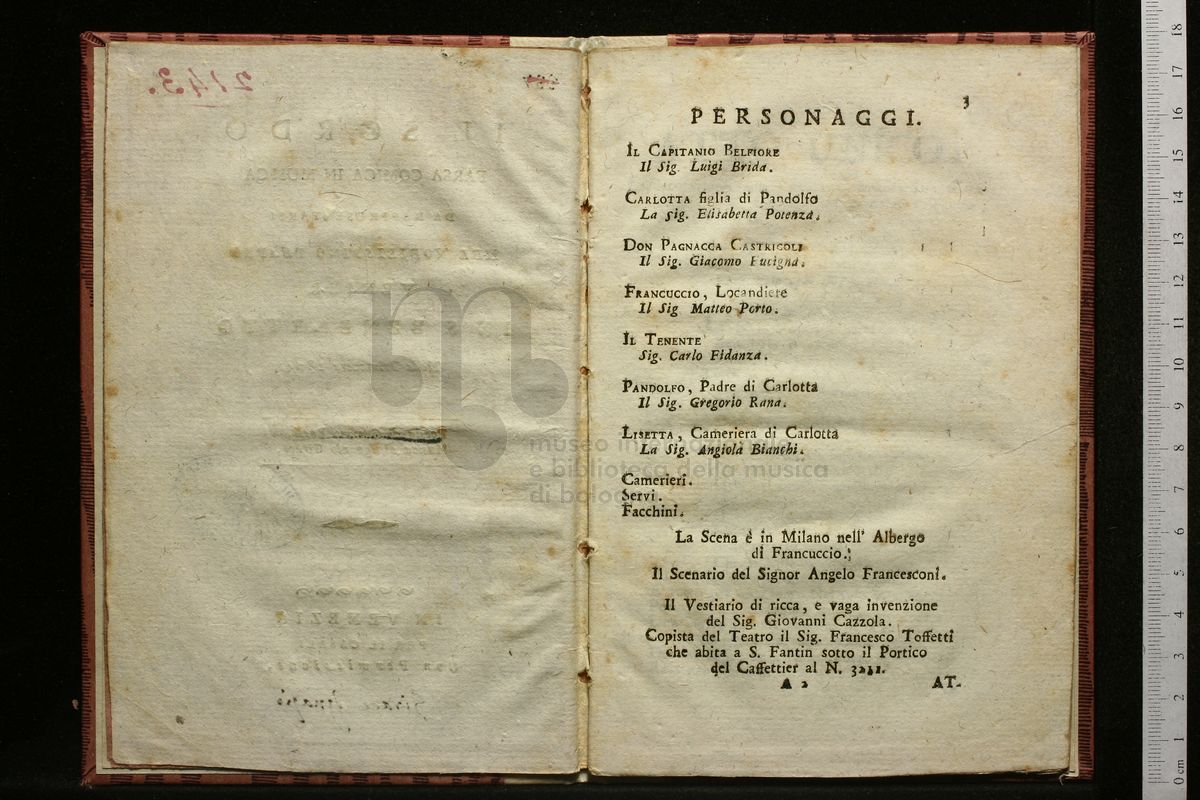 2143.
3
PERSONAGGI.
IL CAPITANIO BELFIORE
Il Sig. Luigi Brida.
CARLOTTA figlia di Pandolfo
La sig. Elisabetta Potenza.
DON PAGNACCA CASTRICOLI
Il Sig. Giacomo
FRANCUCCIO, Locandiere
Il Sig Matteo Porto.
IL TENENTE
Sig. Carlo Fidanza.
PANDOLFO, Padre di Carlotta
Il Sig. Gregorio Rana.
LISETTA, Cameriera di Carlotta
La Sig. Angiola Bianchi.
Camerieri.
Servi.
Facchini.
La Scena è in Milano nell' Albergo
di Francuccio.
Il Scenario del Signor Angelo Francesconi.
Il Vestiario di ricca, e vaga invenzione
del Sig. Giovanni Cazzola.
Copista del Teatro il Sig. Francesco Toffetti
che abita a S. Fantin sotto il Portico
del Caffettier al N.
A 2
AT-
museo internazionale
e biblioteca della musica
di bologna
0 cm 1 2 3 4 5 6 7 8 9 10 11 12 13 14 15 16 17 18